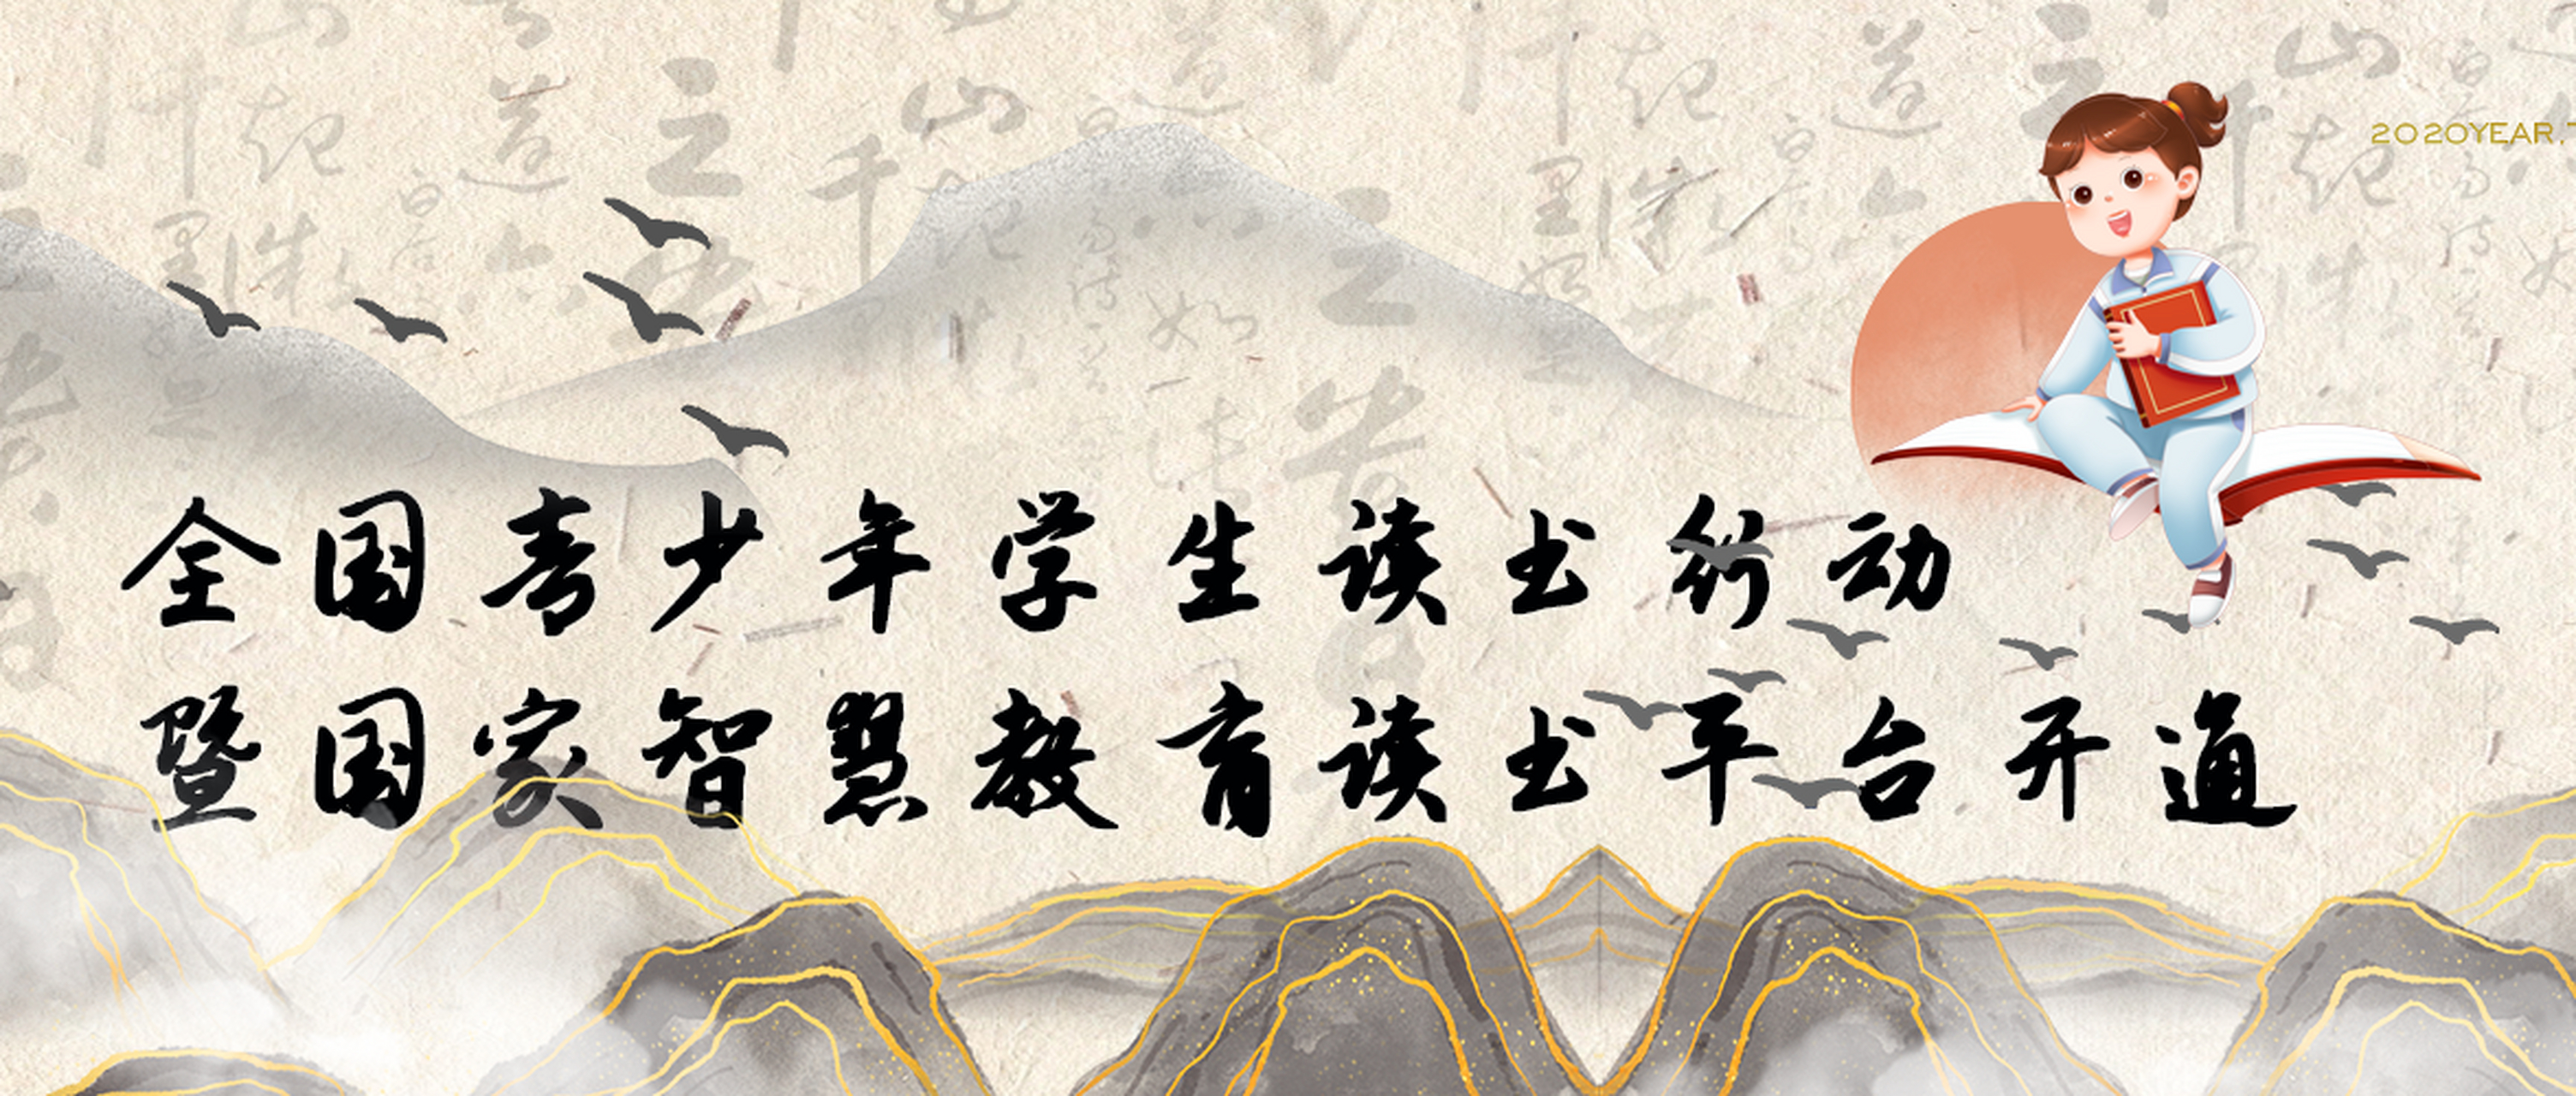 2020YEAR.
全国青少年学生读书行动
暨国家智慧教育读书平台开通